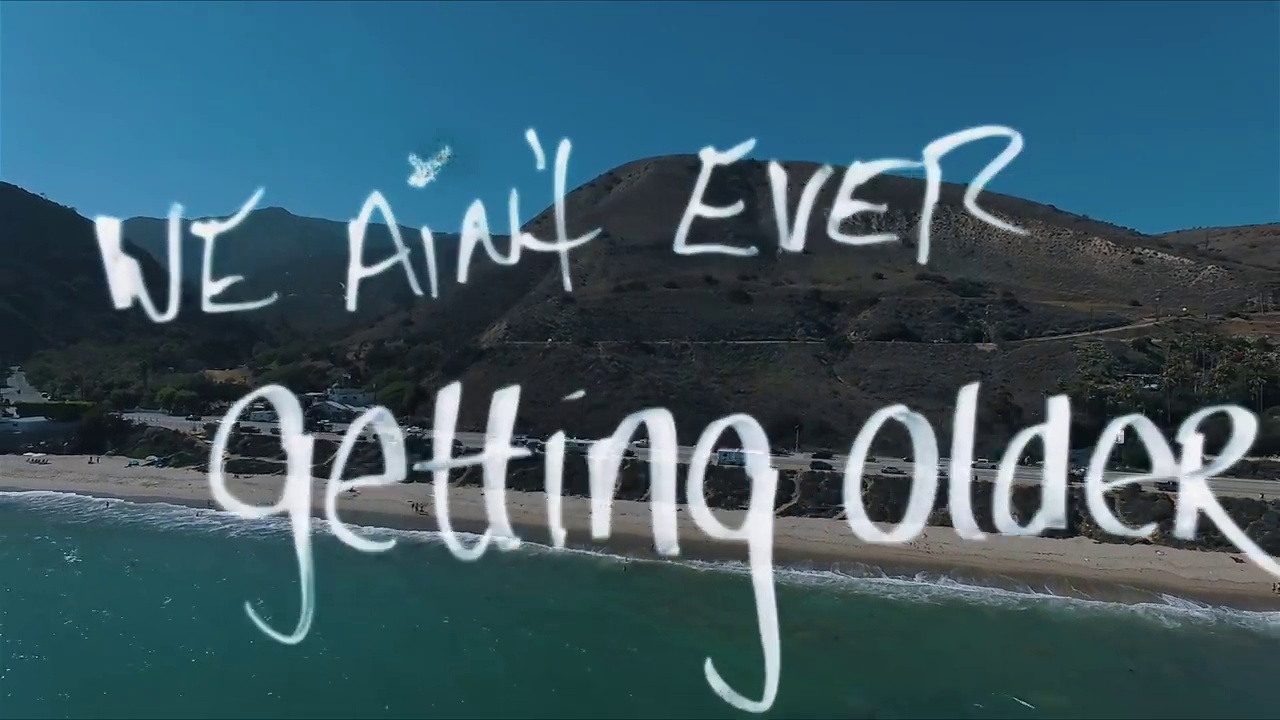 WE AiN't EVER
getting OldeR